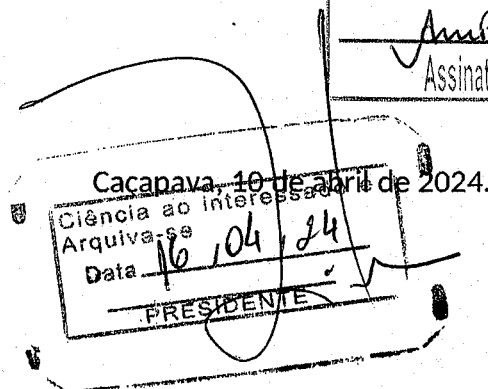 Assinat
Caçapava, 10 de abril de 2024.
Ciência ao interessado e
Arquiva-se
Data 16 / 04 / 24
PRESIDENTE